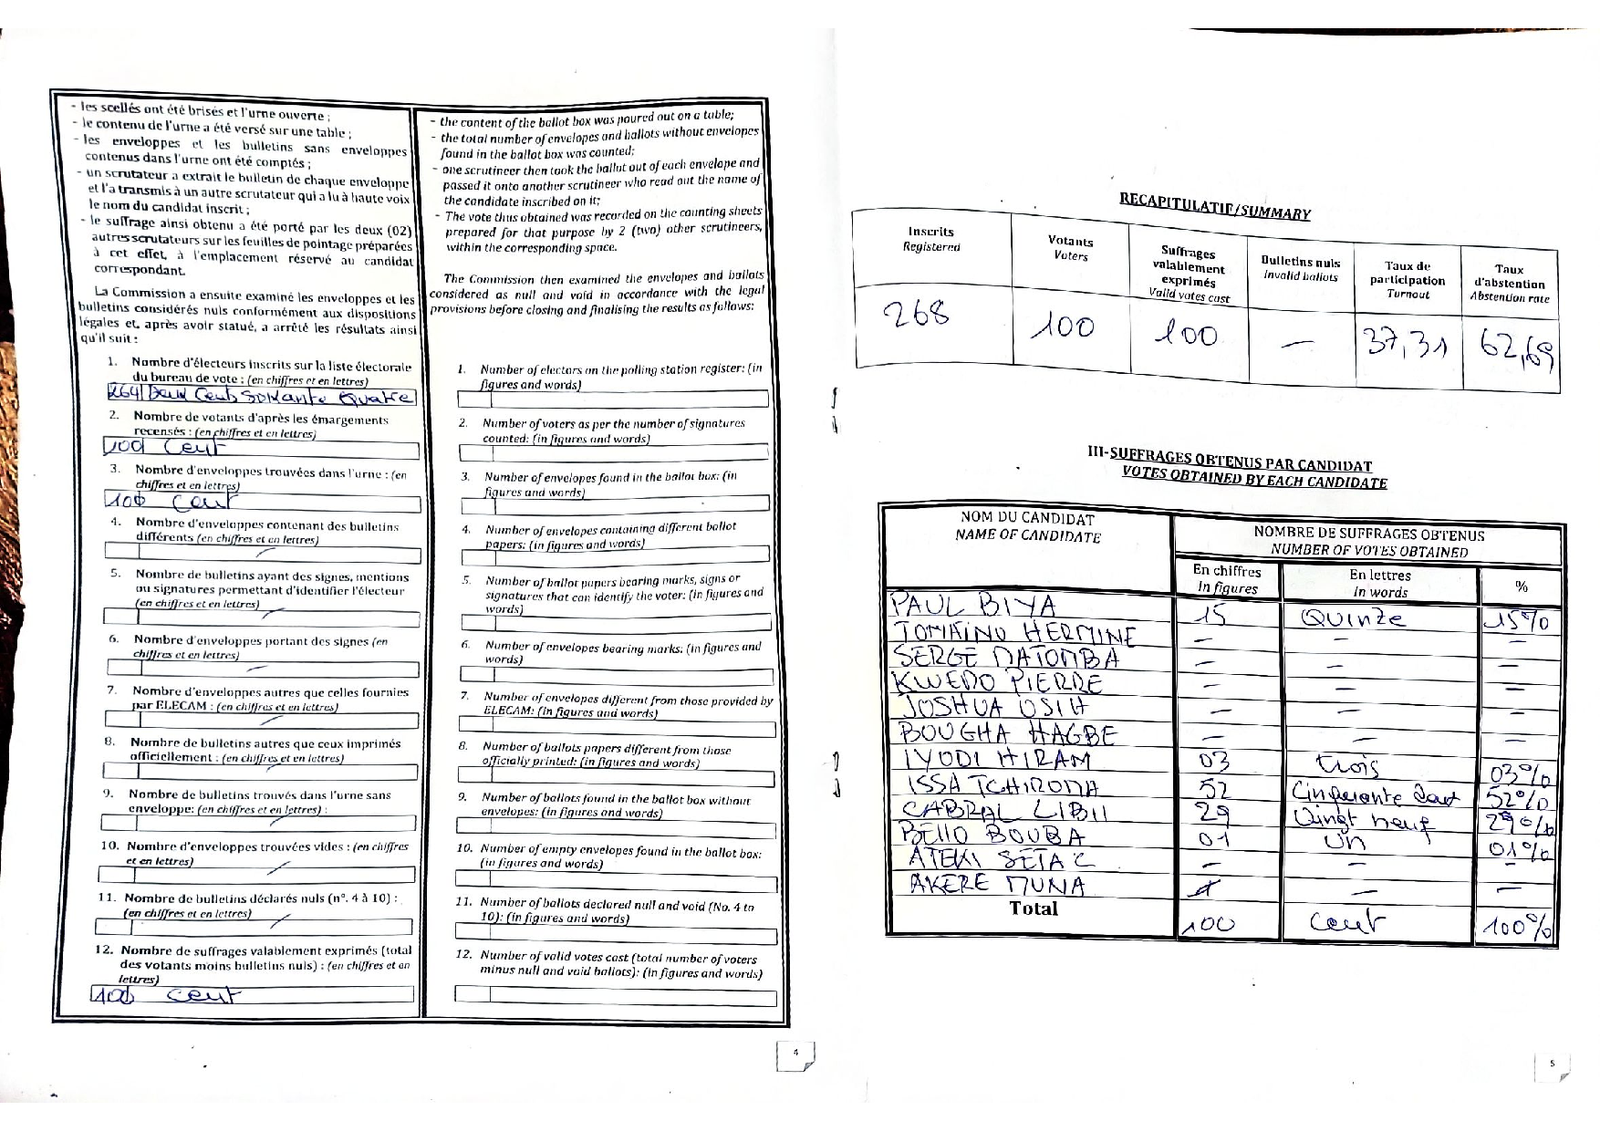 - les scellés ont été brisés et l'urne ouverte ;
- le contenu de l'urne a été versé sur une table ;
- les enveloppes et les bulletins sans enveloppes
contenus dans l'urne ont été comptés ;
- un scrutateur a extrait le bulletin de chaque enveloppe
et l'a transmis à un autre scrutateur qui a lu à haute voix
le nom du candidat inscrit ;
- le suffrage ainsi obtenu a été porté par les deux (02)
autres scrutateurs sur les feuilles de pointage préparées
à cet effet, à l'emplacement réservé au candidat
correspondant.
La Commission a ensuite examiné les enveloppes et les
bulletins considérés nuls conformément aux dispositions
légales et, après avoir statué, a arrêté les résultats ainsi
qu'il suit :
1. Nombre d'électeurs inscrits sur la liste électorale
du bureau de vote : (en chiffres et en lettres)
264 Deux Cents Soixante Quatre
2. Nombre de votants d'après les émargements
recensés : (en chiffres et en lettres)
100 Cent
3. Nombre d'enveloppes trouvées dans l'urne : (en
chiffres et en lettres)
100 Cent
4. Nombre d'enveloppes contenant des bulletins
différents (en chiffres et en lettres)
5. Nombre de bulletins ayant des signes, mentions
ou signatures permettant d'identifier l'électeur
(en chiffres et en lettres)
6. Nombre d'enveloppes portant des signes (en
chiffres et en lettres)
7. Nombre d'enveloppes autres que celles fournies
par ELECAM : (en chiffres et en lettres)
8. Nombre de bulletins autres que ceux imprimés
officiellement : (en chiffres et en lettres)
9. Nombre de bulletins trouvés dans l'urne sans
enveloppe: (en chiffres et en lettres) :
10. Nombre d'enveloppes trouvées vides : (en chiffres
et en lettres)
11. Nombre de bulletins déclarés nuls (n°. 4 à 10) :
(en chiffres et en lettres)
12. Nombre de suffrages valablement exprimés (total
des votants moins bulletins nuls) : (en chiffres et en
lettres)
100 Cent
- the content of the ballot box was poured out on a table;
- the total number of envelopes and ballots without envelopes
found in the ballot box was counted;
- one scrutineer then took the ballot out of each envelope and
passed it onto another scrutineer who read out the name of
the candidate inscribed on it;
- The vote thus obtained was recorded on the counting sheets
prepared for that purpose by 2 (two) other scrutineers,
within the corresponding space.
The Commission then examined the envelopes and ballots
considered as null and void in accordance with the legal
provisions before closing and finalising the results as follows:
1. Number of electors on the polling station register: (in
figures and words)
2. Number of voters as per the number of signatures
counted: (in figures and words)
3. Number of envelopes found in the ballot box: (in
figures and words)
4. Number of envelopes containing different ballot
papers: (in figures and words)
5. Number of ballot papers bearing marks, signs or
signatures that can identify the voter: (in figures and
words)
6. Number of envelopes bearing marks: (in figures and
words)
7. Number of envelopes different from those provided by
ELECAM: (in figures and words)
8. Number of ballots papers different from those
officially printed: (in figures and words)
9. Number of ballots found in the ballot box without
envelopes: (in figures and words)
10. Number of empty envelopes found in the ballot box:
(in figures and words)
11. Number of ballots declared null and void (No. 4 to
10): (in figures and words)
12. Number of valid votes cast (total number of voters
minus null and void ballots): (in figures and words)
4
RECAPITULATIF/SUMMARY
Inscrits Registered
Votants Voters
Suffrages valablement exprimés Valid votes cast
Bulletins nuls Invalid ballots
Taux de participation Turnout
Taux d'abstention Abstention rate
268 100 100 — 37,31 62,69
III-SUFFRAGES OBTENUS PAR CANDIDAT
VOTES OBTAINED BY EACH CANDIDATE
NOM DU CANDIDAT
NAME OF CANDIDATE
NOMBRE DE SUFFRAGES OBTENUS
NUMBER OF VOTES OBTAINED
En chiffres In figures
En lettres In words
%
PAUL BIYA 15 Quinze 15%
TOMAINO HERMINE — — —
SERGE MATOMBA — — —
KWEMO PIERRE — — —
JOSHUA OSIH — — —
BOUGHA HAGBE — — —
IYODI HIRAM 03 trois 03%
ISSA TCHIROMA 52 Cinquante deux 52%
CABRAL LIBII 29 Vingt neuf 29%
BELLO BOUBA 01 Un 01%
ATEKI SETA C — — —
AKERE MUNA — — —
Total 100 Cent 100%
5